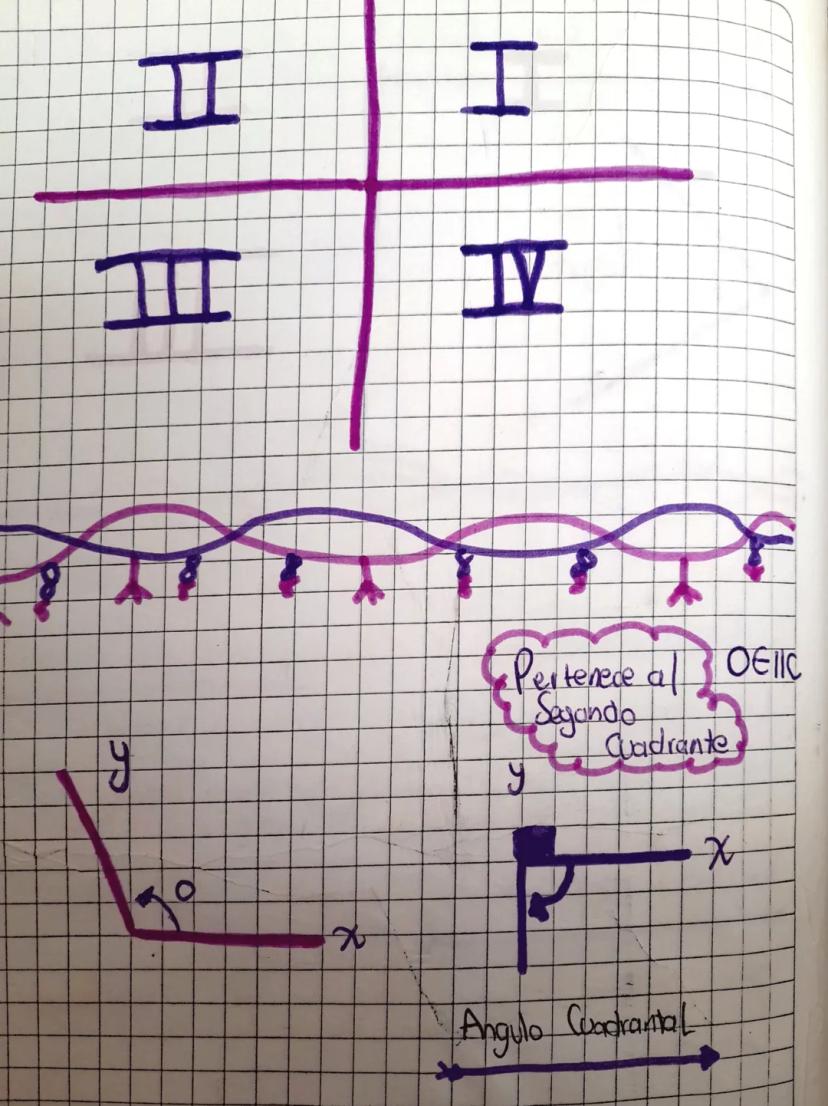 II
I
III
IV
Pertenece al
Segundo
Cuadrante
OEIIC
y
O
x
y
x
Angulo Cuadrantal